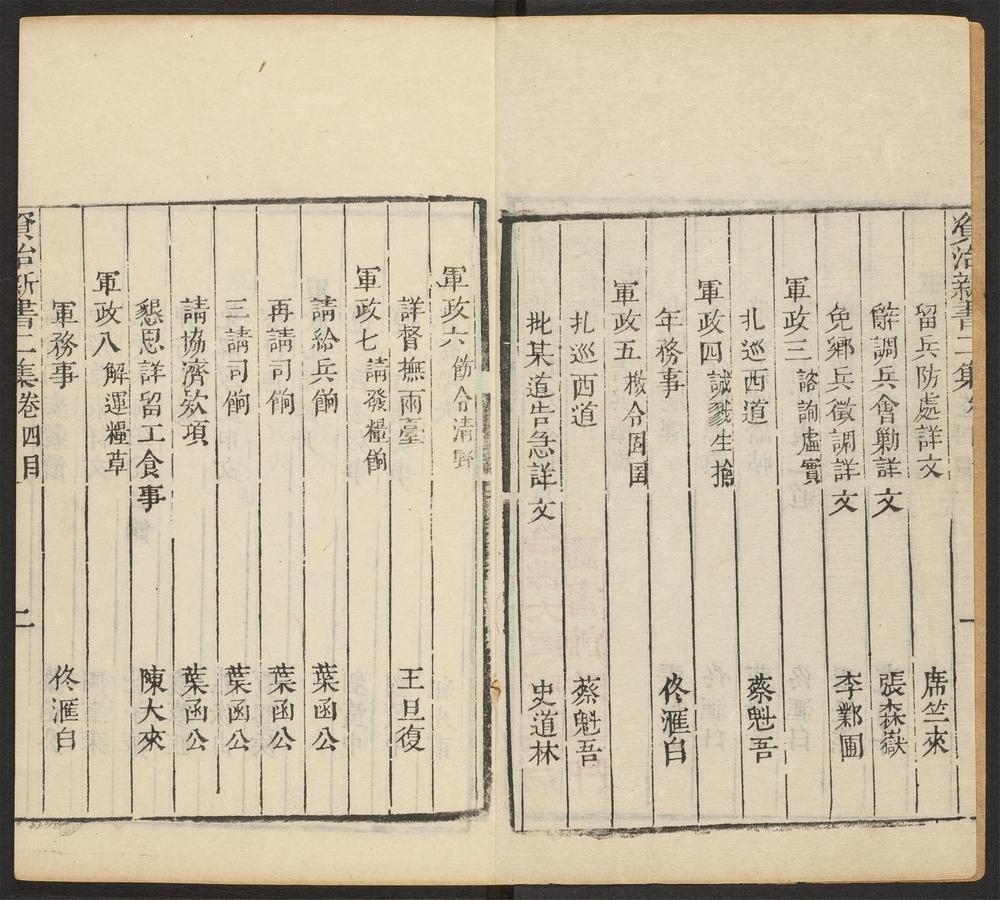 資治新書二集
一
留兵防處詳文 席竺來
辭調兵會剿詳文 張森嶽
免鄉兵徵調詳文 李鄴園
軍政三 諮詢虛實
扎巡西道 蔡魁吾
軍政四 誡戮生擒
年務事 佟滙白
軍政五 檄令固圉
扎巡西道 蔡魁吾
批某道告急詳文 史道林
軍政六 飭令清野
詳督撫兩臺 王旦復
軍政七 請發糧餉
請給兵餉 葉函公
再請司餉 葉函公
三請司餉 葉函公
請協濟欵項 葉函公
懇恩詳留工食事 陳大來
軍政八 解運糧草
軍務事 佟滙白
資治新書二集卷四目
二